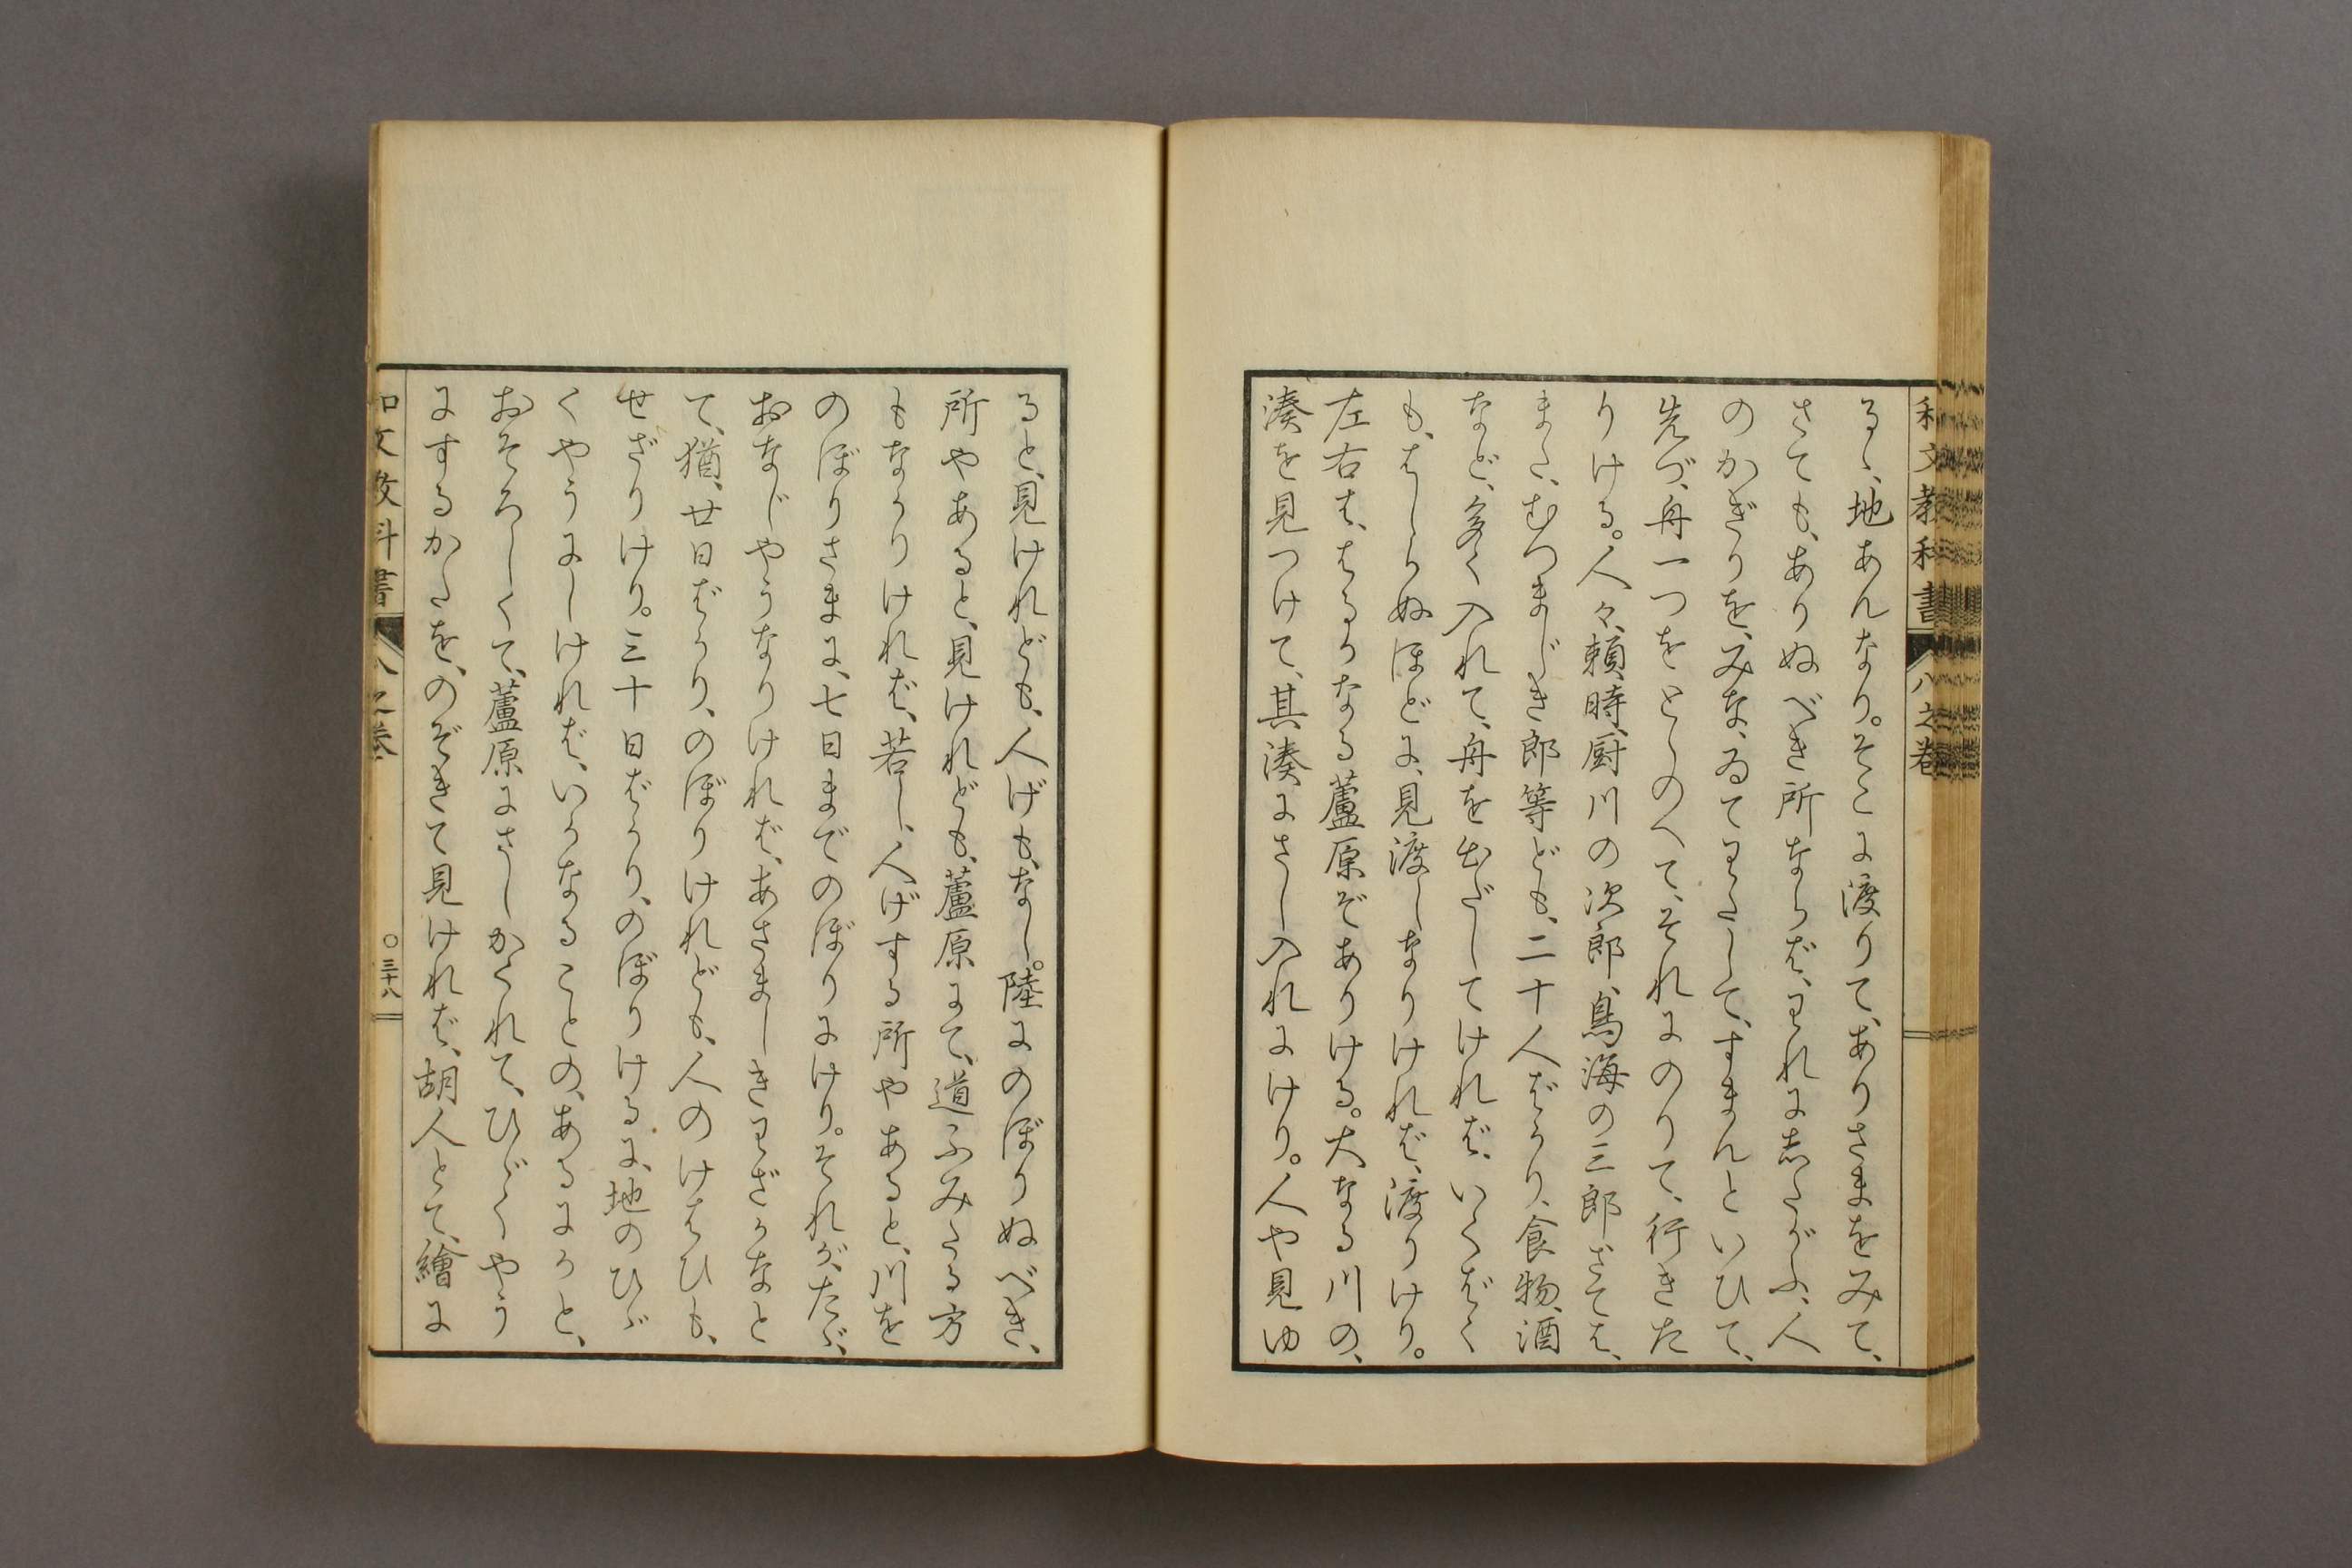 和文教科書 八之卷
るゝ地あんなり。そこに渡りて、ありさまをみて、
さても、ありぬべき所ならば、われに志たがふ、人
のかぎりを、みな、ゐてわたして、すまんといひて、
先づ、舟一つをとゝのへて、それにのりて、行きた
りける。人々、頼時、厨川の次郎、鳥海の三郎、さては、
また、むつまじき郎等ども、二十人ばかり、食物、酒
など、多く入れて、舟を出だしてけれバ、いくばく
も、はしらぬほどに、見渡しなりけれバ、渡りけり。
左右は、はるかなる蘆原ぞありける。大なる川の、
湊を見つけて、其湊にさし入れにけり。人や見ゆ
ると、見けれども、人げも、なし。陸にのぼりぬべき、
所やあると、見けれども、蘆原にて、道ふみたる方
もなかりけれバ、若し、人げする所やあると、川を
のぼりさまに、七日までのぼりにけり。それが、たゞ、
おなじやうなりけれバ、あさましきわざかなと
て、猶、廿日ばかり、のぼりけれども、人のけはひも、
せざりけり。三十日ばかり、のぼりけるに、地のひゞ
くやうにしけれバ、いかなることの、あるにかと、
おそろしくて、蘆原にさしかくれて、ひゞくやう
にするかたを、のぞきて見けれバ、胡人とて、繪に
和文教科書 八之卷 〇三十八